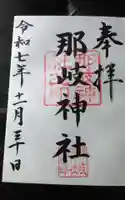 奉拝
那岐神社
令和七年十一月三十日